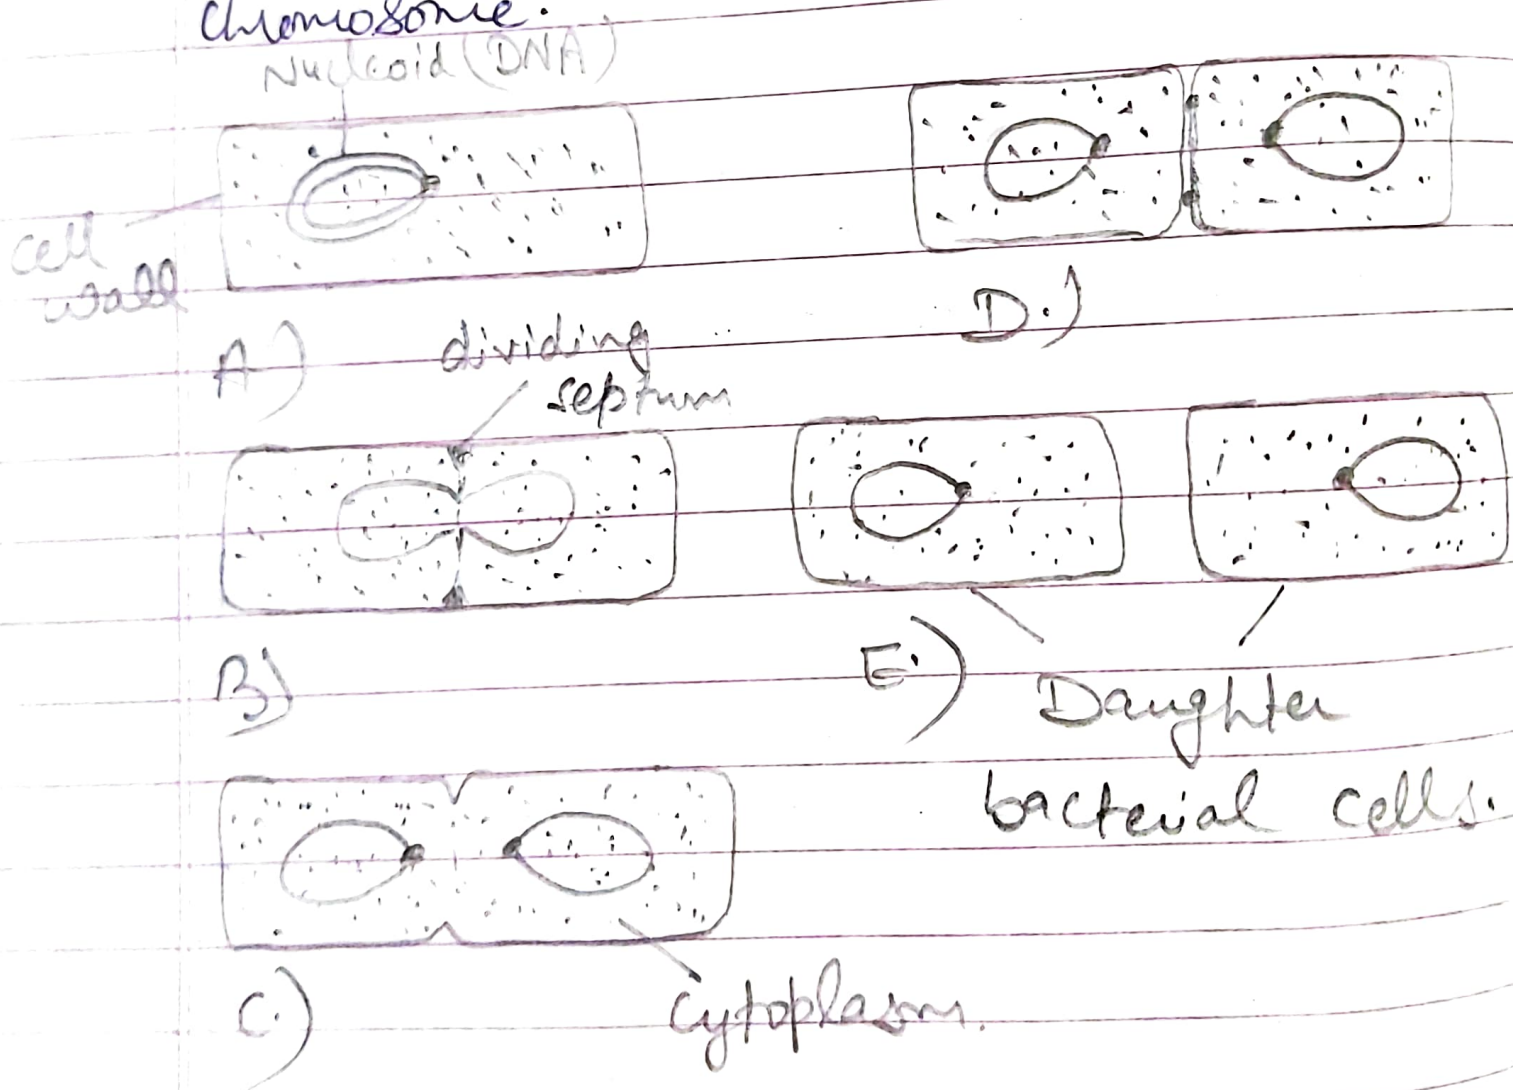 Chromosome.
Nucleoid (DNA)
cell
wall
A)
dividing
septum
B)
C.)
cytoplasm.
D.)
E.)
Daughter
bacterial cells.